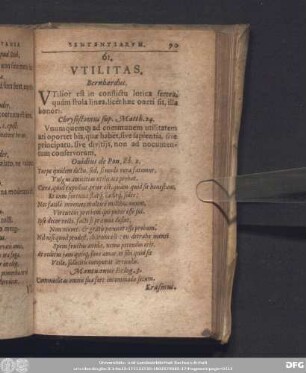 SENTENTIARVM. 90
61.
VTILITAS.
Bernhardus.
VTilior est in conflictu lorica ferrea,
quàm stola linea, licet hæc oneri sit, illa
honori.
Chrysostomus sup. Matth. 24.
Vnumquemq; ad communem utilitatem
uti oportet his, quæ habet, sive sapientia, sive
principatu, sive divitijs, non ad nocumen-
tum conservorum.
Ovidius de Pon. lib. 2.
Turpe quidem dictu, sed, si modò vera fatemur,
Vulgus amicitias utilitate probat.
Cura, quid expediat, prius est, quàm quid sit honestum,
Et cum fortuna statq; caditq; fides:
Nec facilè invenies multis è millibus unum,
Virtutem pretium qui putet esse sui.
Ipse decor recti, facti si præmia desint,
Non movet: & gratis pœnitet esse probum.
Nil nisi quod prodest, charum est: en detrahe menti
Spem fructus avidæ, nemo petendus erit.
At reditus jam quisq; suos amat: & sibi quid sit
Utile, sollicitis computat articulis.
Mantuanus Eclog.
Commoditas omnis sua fert incommoda secum.
Erasmus.